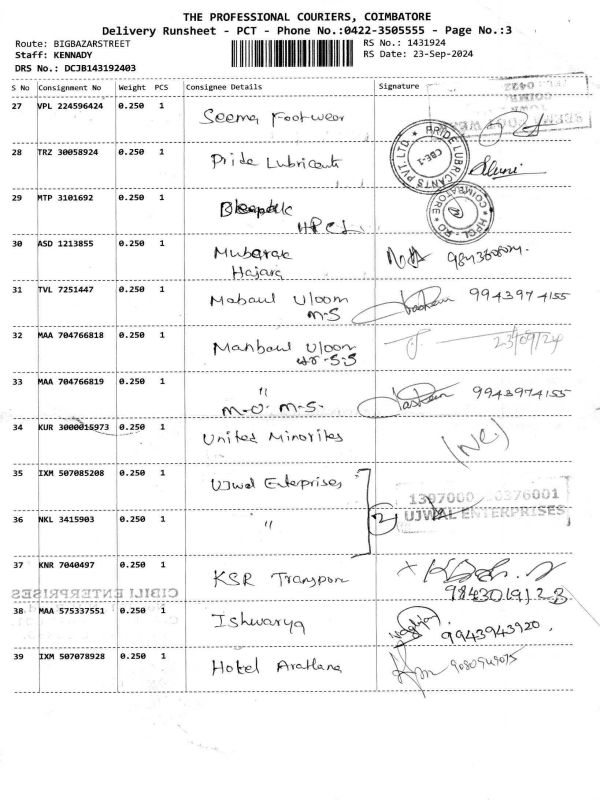 THE PROFESSIONAL COURIERS, COIMBATORE
Delivery Runsheet - PCT - Phone No.:0422-3505555 - Page No.:3
Route: BIGBAZARSTREET
RS No.: 1431924
Staff: KENNADY
RS Date: 23-Sep-2024
DRS No.: DCJB143192403
S No Consignment No Weight PCS Consignee Details Signature
27 VPL 224596424 0.250 1 Seema Footwear
28 TRZ 30058924 0.250 1 Pride Lubricants
PRIDE LUBRICANTS PVT. LTD
CBE-1
29 MTP 3101692 0.250 1
HPCL
HPCL - RO
COIMBATORE
30 ASD 1213855 0.250 1 Mubarak
Hajara
31 TVL 7251447 0.250 1 Uloom 9943974155
M-S
32 MAA 704766818 0.250 1 Manbaul Uloom 23/09/24
33 MAA 704766819 0.250 1 " 9943974155
M-U- M-S-
34 KUR 3000015973 0.250 1 United Minorites (NC)
35 IXM 507085208 0.250 1 Ujwal Enterprises
36 NKL 3415903 0.250 1 " 2
UJWAL ENTERPRISES
37 KNR 7040497 0.250 1 KSR Transport
9843019123
CIBILI ENTERPRISES
38 MAA 575337551 0.250 1 Ishwarya 9943943920
39 IXM 507078928 0.250 1 Hotel Aradhana 9080949075